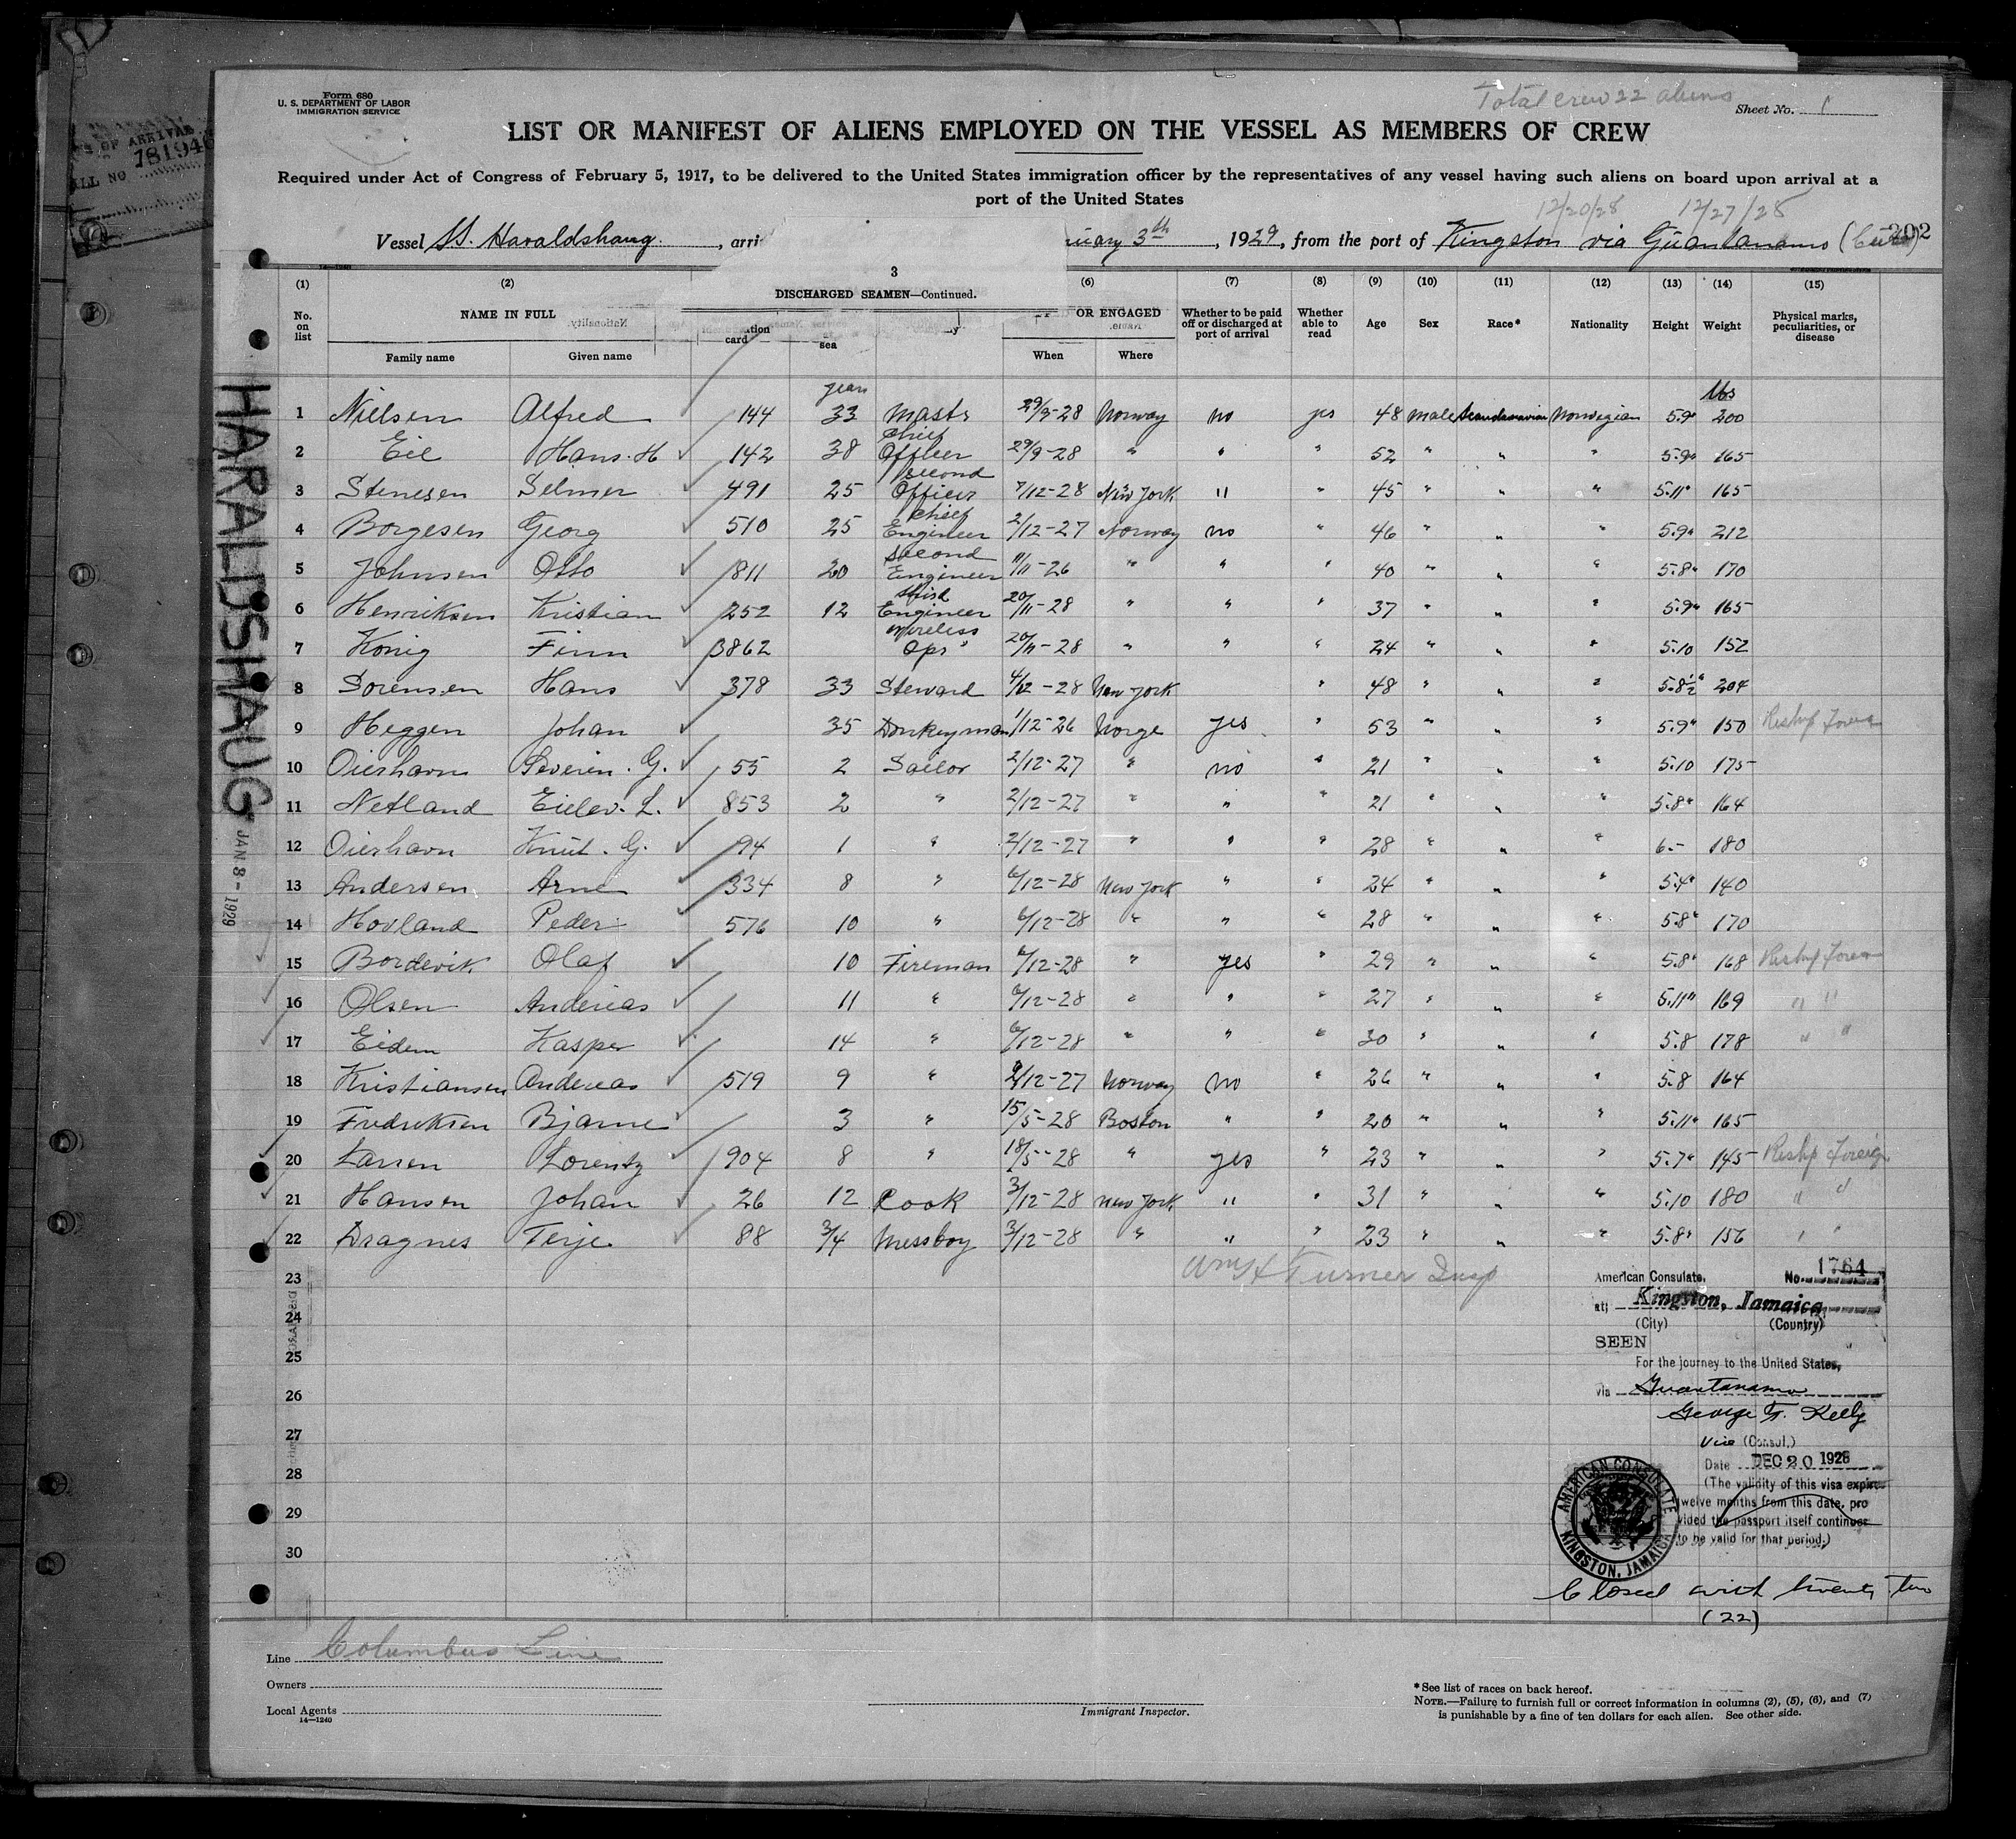 Form 680
U. S. DEPARTMENT OF LABOR
IMMIGRATION SERVICE
Total crew 22 aliens
Sheet No. 1
LIST OR MANIFEST OF ALIENS EMPLOYED ON THE VESSEL AS MEMBERS OF CREW
Required under Act of Congress of February 5, 1917, to be delivered to the United States immigration officer by the representatives of any vessel having such aliens on board upon arrival at a
port of the United States
12/20/28 12/27/28
Vessel SS. Haraldshaug, arri uary 3th, 1929, from the port of Kingston via Guantanamo (Cuba) 202
14-1240
3
DISCHARGED SEAMEN—Continued.
(1) (2) (6) (7) (8) (9) (10) (11) (12) (13) (14) (15)
No. on list NAME IN FULL OR ENGAGED Whether to be paid off or discharged at port of arrival Whether able to read Age Sex Race* Nationality Height Weight Physical marks, peculiarities, or disease
Family name Given name card sea When Where
years lbs
1 Nielsen Alfred 144 33 Mastr 29/9-28 Norway no yes 48 male Scandinavian Norwegian 5.9" 200
2 Eie Hans. H 142 38 Chief Officer 29/9-28 " " " 52 " " " 5.9" 165
3 Stenesen Selmer 491 25 Second Officer 7/12-28 New York " " 45 " " " 5.11" 165
4 Borgesen Georg 510 25 Chief Engineer 2/12-27 Norway no " 46 " " " 5.9" 212
5 Johnsen Otto 811 20 Second Engineer 11/11-26 " " " 40 " " " 5.8" 170
6 Henriksen Kristian 252 12 Third Engineer 20/11-28 " " " 37 " " " 5.9" 165
7 Konig Finn 3862 Wireless Opr 20/11-28 " " " 24 " " " 5.10 152
8 Sorensen Hans 378 33 Steward 4/12-28 New York " 48 " " " 5.8½" 204
9 Heggen Johan 35 Donkeyman 1/12-26 Norge yes " 53 " " " 5.9" 150 Reship Foreign
10 Oiershavn Severin. G. 55 2 Sailor 2/12-27 " no " 21 " " " 5.10 175
11 Netland Eilev. L. 853 2 " 2/12-27 " " " 21 " " " 5.8" 164
12 Oiershavn Knut. G. 94 1 " 2/12-27 " " " 28 " " " 6.- 180
13 Andersen Arne 334 8 " 6/12-28 New York " " 24 " " " 5.4" 140
14 Hovland Peder 576 10 " 6/12-28 " " " 28 " " " 5.8" 170
15 Bordevik Olaf 10 Fireman 6/12-28 " yes " 29 " " " 5.8" 168 Reship Foreign
16 Olsen Andereas 11 " 6/12-28 " " " 27 " " " 5.11" 169 " "
17 Eidem Kasper 14 " 6/12-28 " " " 30 " " " 5.8 178 " "
18 Kristiansen Andereas 519 9 " 2/12-27 Norway no " 26 " " " 5.8 164
19 Fredriksen Bjarne 3 " 15/5-28 Boston " " 20 " " " 5.11" 165
20 Larsen Lorentz 904 8 " 18/5-28 " yes " 23 " " " 5.7" 145 Reship Foreign
21 Hansen Johan 26 12 Cook 3/12-28 New York " " 31 " " " 5.10 180 " "
22 Dragnes Terje 88 3/4 Messboy 3/12-28 " " " 23 " " " 5.8" 156 " "
23
24
25
26
27
28
29
30
Wm H Turner Insp
American Consulate, No. 1764
at Kingston, Jamaica
(City) (Country)
SEEN
For the journey to the United States,
via Guantanamo
George F. Kelly
Vice (Consul.)
Date DEC 20 1928
(The validity of this visa expires
twelve months from this date, pro
vided the passport itself continues
to be valid for that period.)
AMERICAN CONSULATE
KINGSTON, JAMAICA
Closed with twenty two
(22)
HARALDSHAUG
JAN 8-1929
OF ARRIVAL
181946
Line Columbus Line
Owners
Local Agents
14-1240
Immigrant Inspector.
*See list of races on back hereof.
NOTE.—Failure to furnish full or correct information in columns (2), (5), (6), and (7)
is punishable by a fine of ten dollars for each alien. See other side.